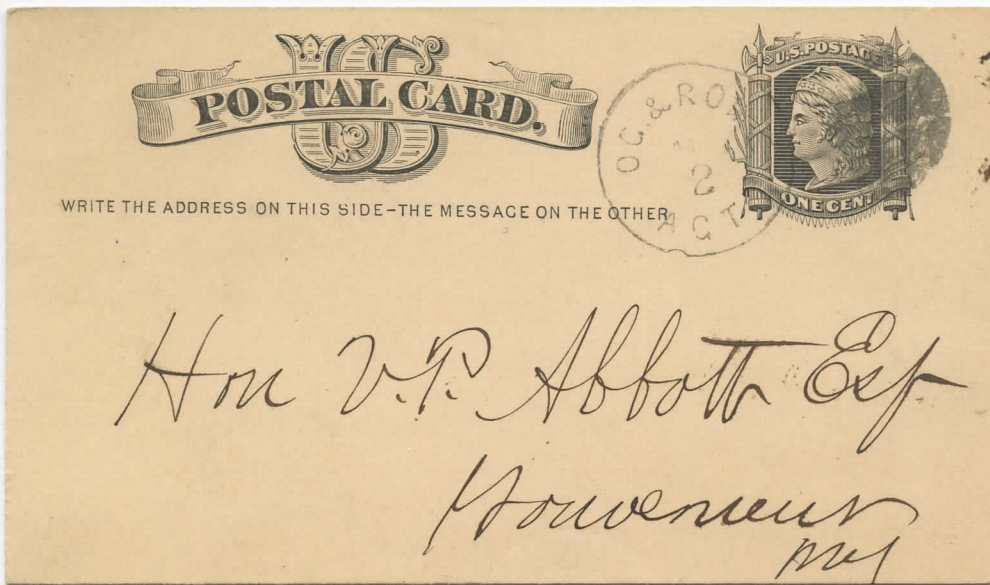 US
POSTAL CARD.
WRITE THE ADDRESS ON THIS SIDE-THE MESSAGE ON THE OTHER
U.S. POSTAGE
ONE CENT
OG. & RO
2
AGT
Hon V.P. Abbott Esq
Gouverneur
N.Y